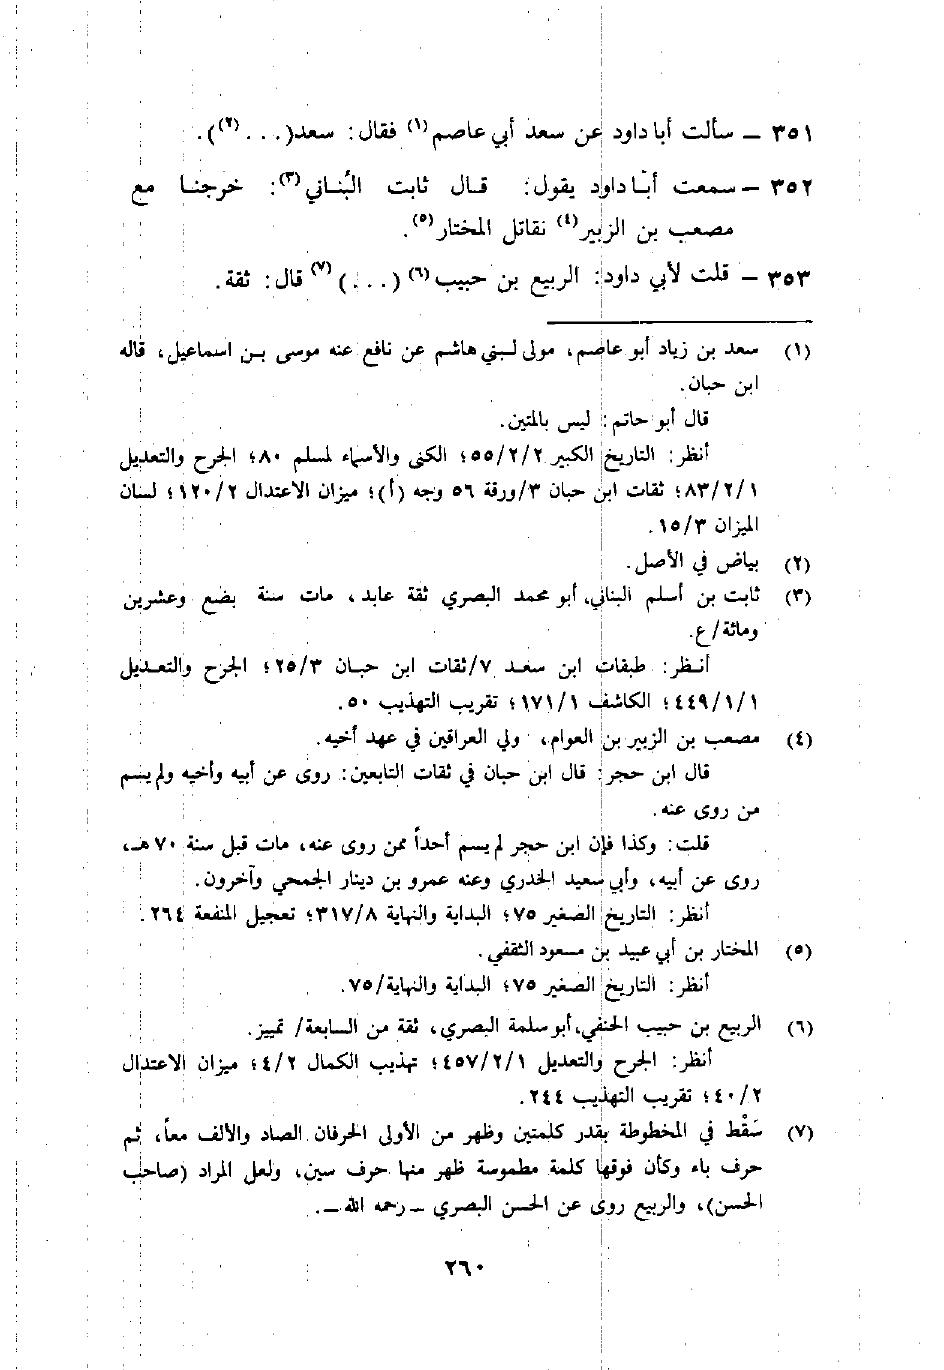 ٣٥١ ــ سألت أبا داود عن سعد أبي عاصم(١) فقال: سعد(. . .(٢)).
٣٥٢ ــ سمعت أبا داود يقول: قال ثابت البُناني(٣): خرجنا مع
مصعب بن الزبير(٤) نقاتل المختار(٥).
٣٥٣ ــ قلت لأبي داود: الربيع بن حبيب(٦) (. . .)(٧) قال: ثقة.
(١) سعد بن زياد أبو عاصم، مولى لبني هاشم عن نافع عنه موسى بن اسماعيل، قاله
ابن حبان.
قال أبو حاتم: ليس بالمتين.
أنظر: التاريخ الكبير ٥٥/٢/٢؛ الكنى والأسماء لمسلم ٨٠؛ الجرح والتعديل
٨٣/٢/١؛ ثقات ابن حبان ٣/ورقة ٥٦ وجه (أ)؛ ميزان الاعتدال ١٢٠/٢؛ لسان
الميزان ١٥/٣.
(٢) بياض في الأصل.
(٣) ثابت بن أسلم البناني، أبو محمد البصري ثقة عابد، مات سنة بضع وعشرين
ومائة/ع.
أنظر: طبقات ابن سعد ٧/ثقات ابن حبان ٢٥/٣؛ الجرح والتعديل
٤٤٩/١/١؛ الكاشف ١٧١/١؛ تقريب التهذيب ٥٠.
(٤) مصعب بن الزبير بن العوام، ولي العراقين في عهد أخيه.
قال ابن حجر: قال ابن حبان في ثقات التابعين: روى عن أبيه وأخيه ولم يسم
من روى عنه.
قلت: وكذا فإن ابن حجر لم يسم أحداً ممن روى عنه، مات قبل سنة ٧٠هـ،
روى عن أبيه، وأبي سعيد الخدري وعنه عمرو بن دينار الجمحي وآخرون.
أنظر: التاريخ الصغير ٧٥؛ البداية والنهاية ٣١٧/٨؛ تعجيل المنفعة ٢٦٤.
(٥) المختار بن أبي عبيد بن مسعود الثقفي.
أنظر: التاريخ الصغير ٧٥؛ البداية والنهاية/٧٥.
(٦) الربيع بن حبيب الحنفي، أبو سلمة البصري، ثقة من السابعة/ تمييز.
أنظر: الجرح والتعديل ٤٥٧/٢/١؛ تهذيب الكمال ٤/٢؛ ميزان الاعتدال
٤٠/٢؛ تقريب التهذيب ٢٤٤.
(٧) سَقْط في المخطوطة بقدر كلمتين وظهر من الأولى الحرفان الصاد والألف معاً، ثم
حرف باء وكأن فوقها كلمة مطموسة ظهر منها حرف سين، ولعل المراد (صاحب
الحسن)، والربيع روى عن الحسن البصري ــ رحمه الله ــ.
٢٦٠